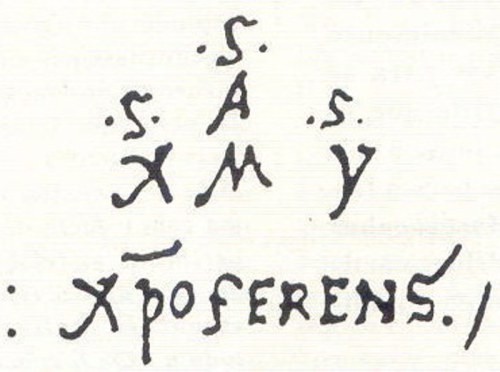 .S.
.S. A .S.
X M Y
: Xp̄oFERENS./